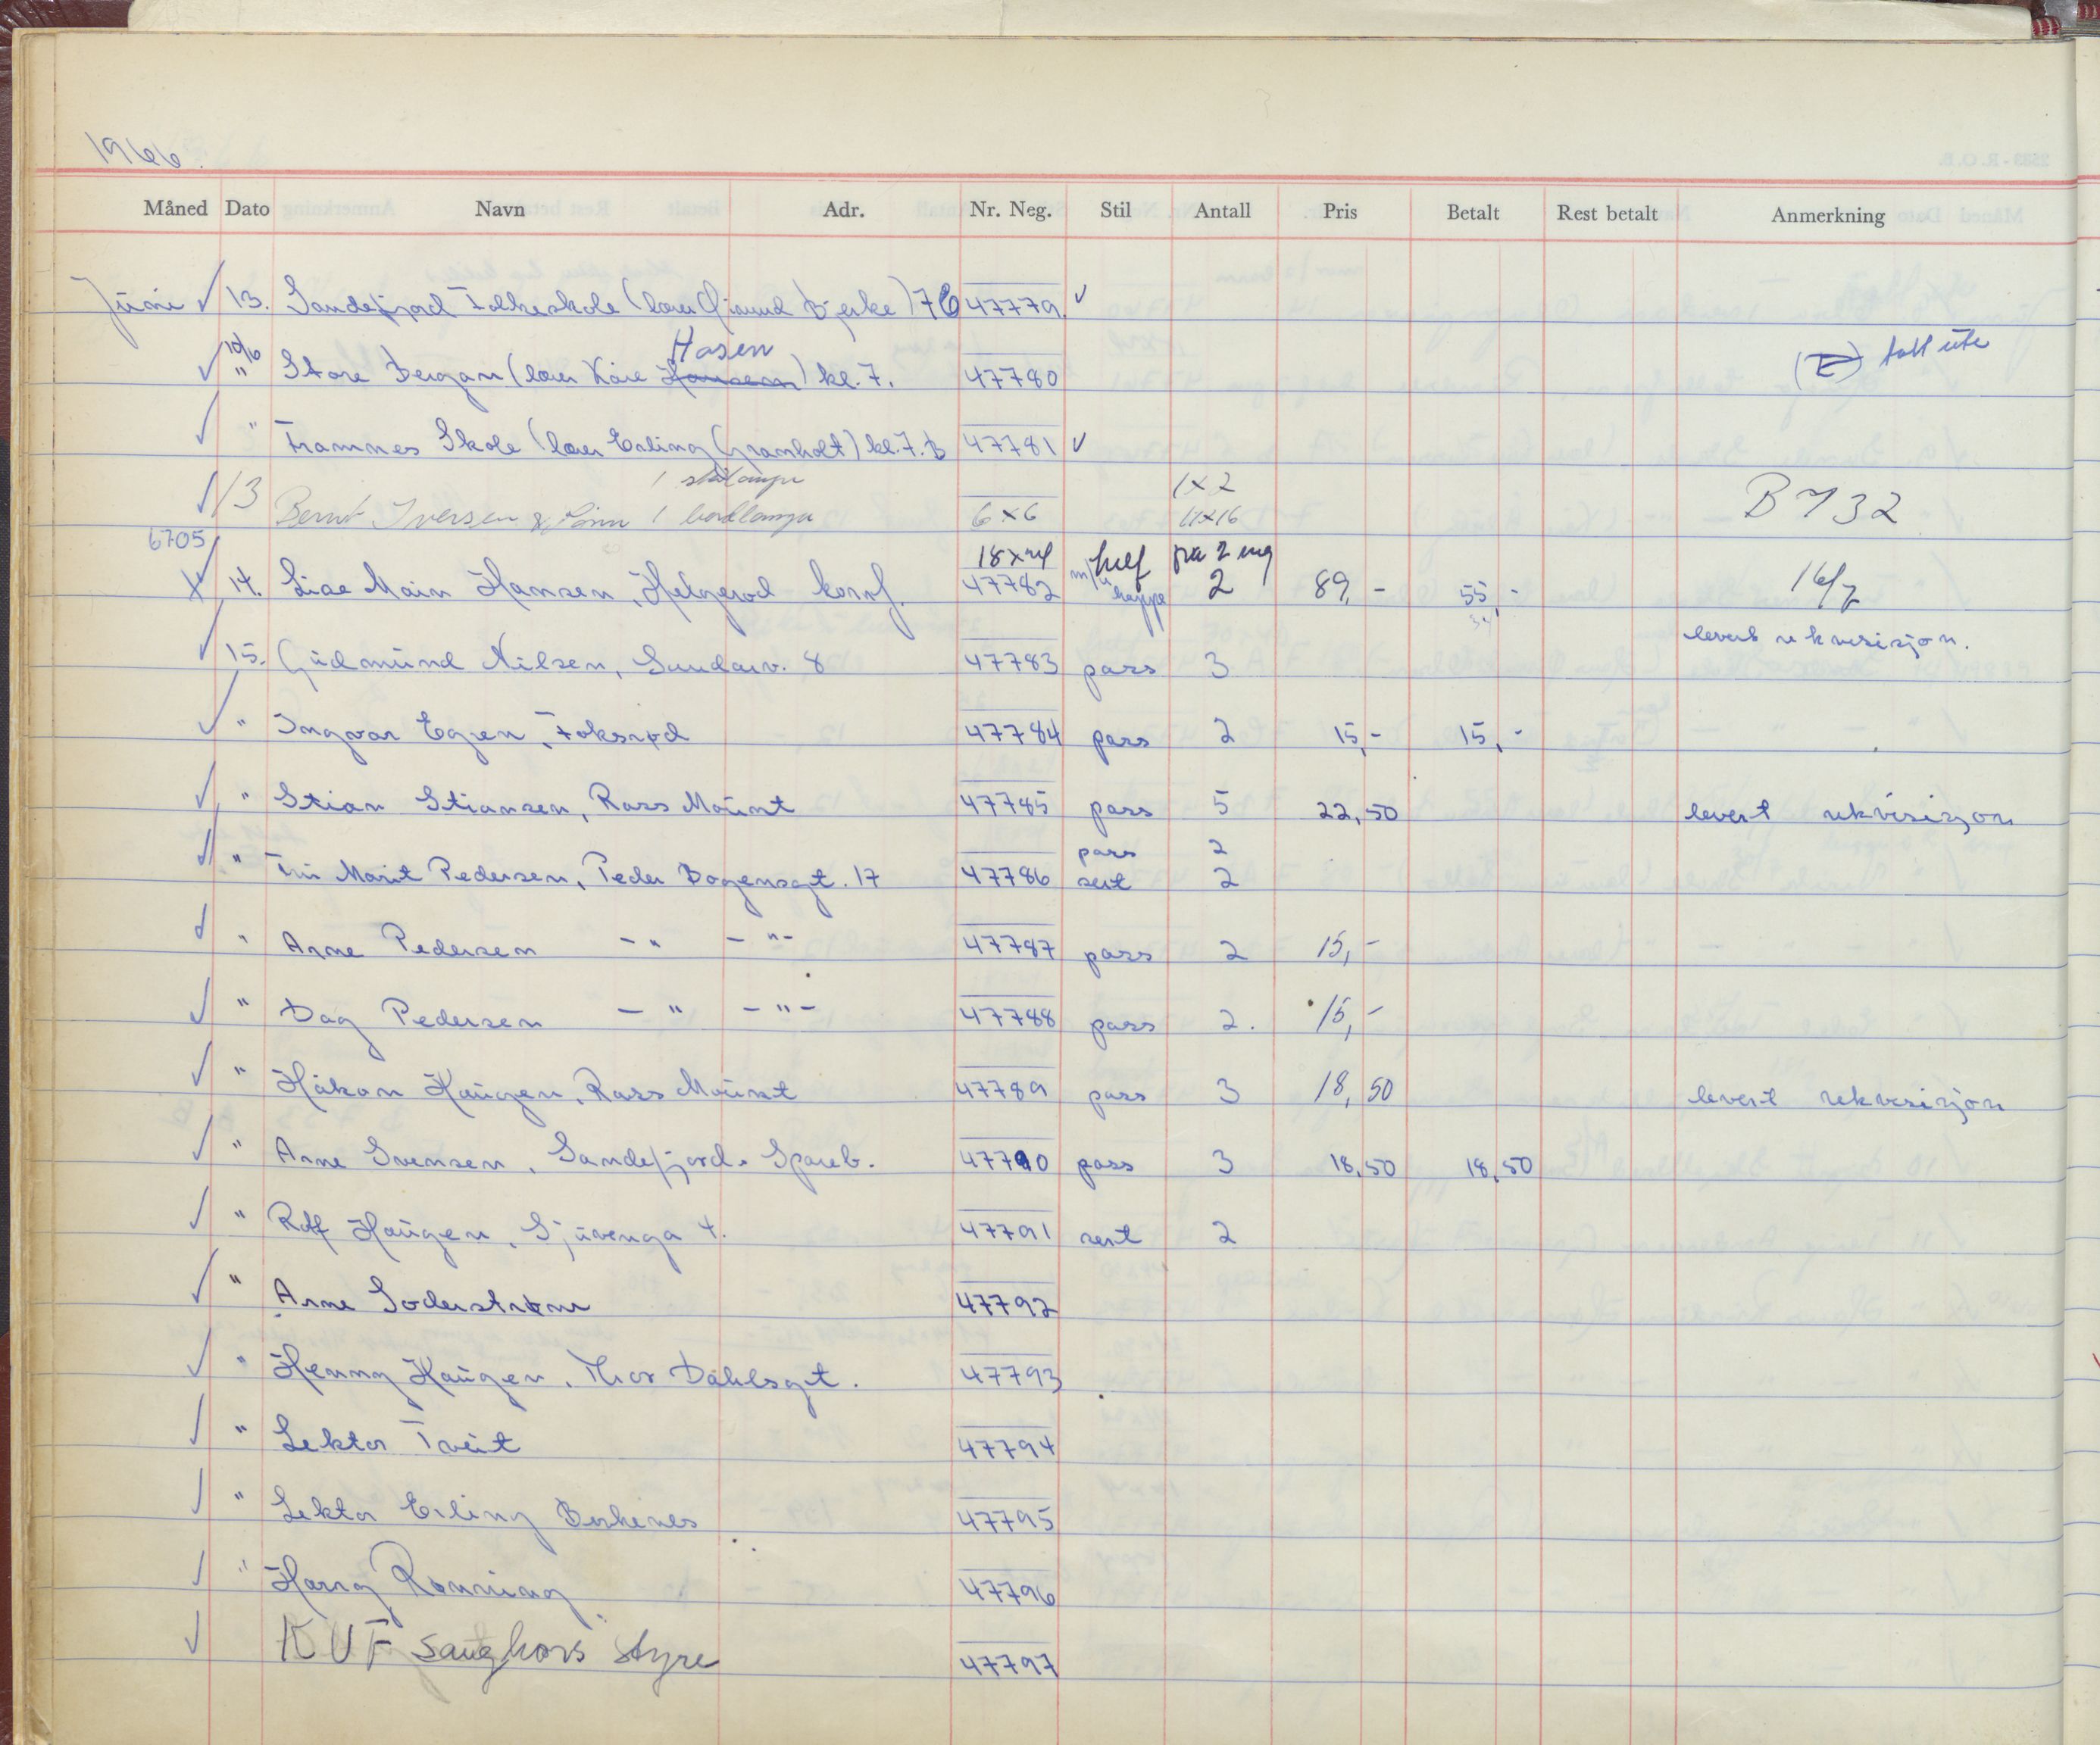 1966.
Måned Dato Navn Adr. Nr. Neg. Stil Antall Pris Betalt Rest betalt Anmerkning
Juni ✓ 13. Sandefjord Folkeskole (lærer Bjerke) 7 47779. ✓
Hasen
✓ 10/6 " Store Bergan (lærer Kåre Hansen) kl. 7. 47780 (E) tatt ute
✓ " Framnes Skole (lærer Erling Granholt) kl. 7. B 47781 ✓
1 stålampe 1x2
✓ 13 Bernt Iversen & Sønn 1 bordlampe 6x6 11x16 B 732
6705
18x24 helf på 2 eng
14. Lise Marn Hansen, Helgerød 47782 m/ kappe 2 89,- 55,- 16/7
✓ 15. Gudmund Nilsen, 8 47783 pass 3 levert rekvisisjon.
✓ " Ingvar Egen, Fokserød 47784 pass 2 15,- 15,-
✓ " Stian Stiansen, Ross Mount 47785 pass 5 22,50 levert rekvisisjon
pass 2
✓ " Marit Pedersen, Peder Bogensgt. 17 47786 sert 2
✓ " Arne Pedersen -"- -"- 47787 pass 2 15,-
✓ " Dag Pedersen -"- -"- 47788 pass 2. 15,-
✓ " Håkon Haugen, Ross Mount 47789 pass 3 18,50 levert rekvisisjon
✓ " Arne Svensen, Sandefjords Spareb. 47790 pass 3 18,50 18,50
✓ " Rolf Haugen, Sjuvenga 4. 47791 sert 2
✓ " Arne Søderstrøm 47792
✓ " Henny Haugen, Thor Dahlsgt. 47793
✓ " Lektor Tveit 47794
✓ " Lektor Erling Berkenes 47795
✓ " Harry Rønning 47796
✓ KUF sangkors styre 47797